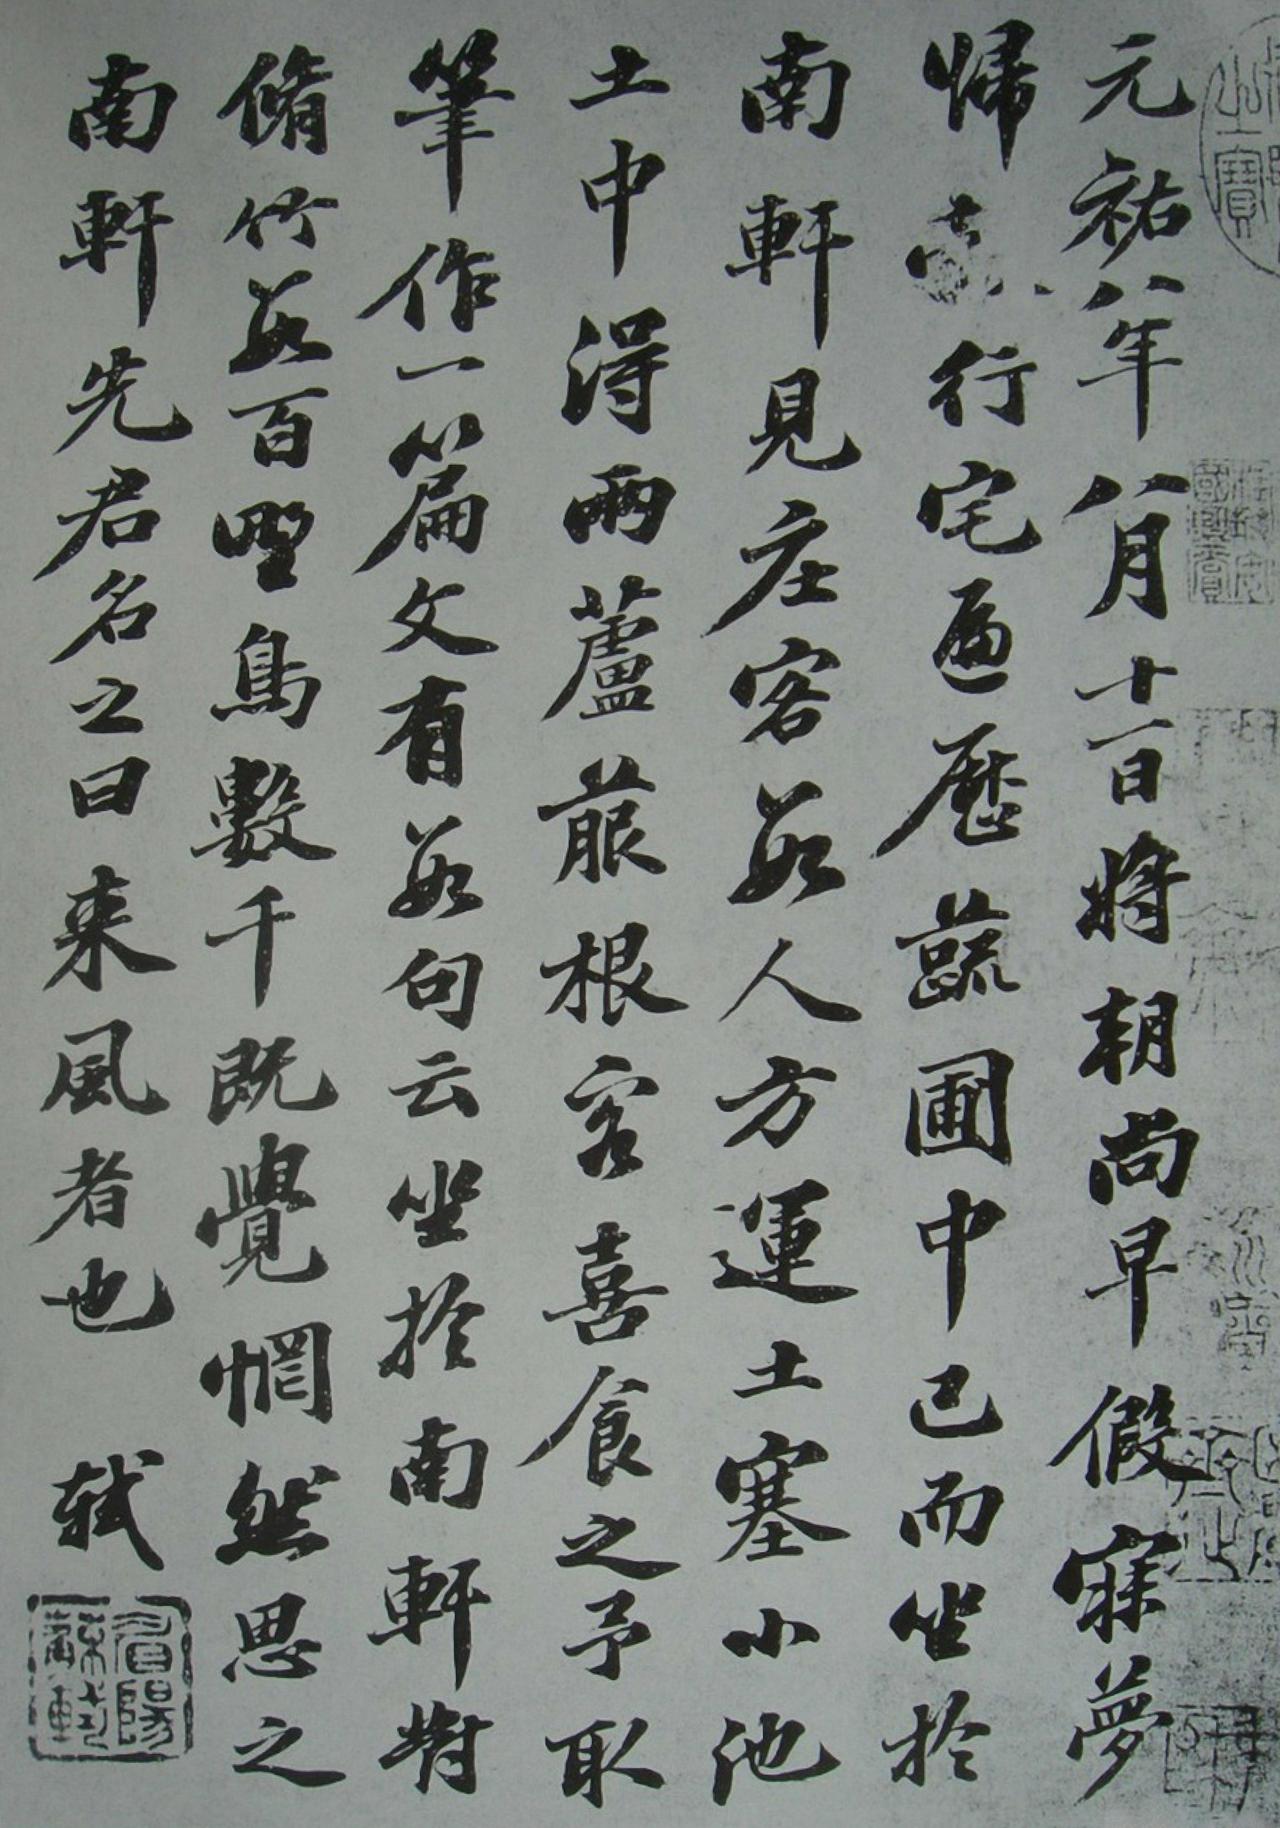 元祐八年八月十一日將朝尚早假寐夢
歸行宅遍歷蔬圃中已而坐於
南軒見庄客數人方運土塞小池
土中得兩蘆菔根客喜食之予取
筆作一篇文有數句云坐於南軒對
脩竹數百野鳥數千既覺惘然思之
南軒先君名之曰来風者也
軾
眉陽蘇軾